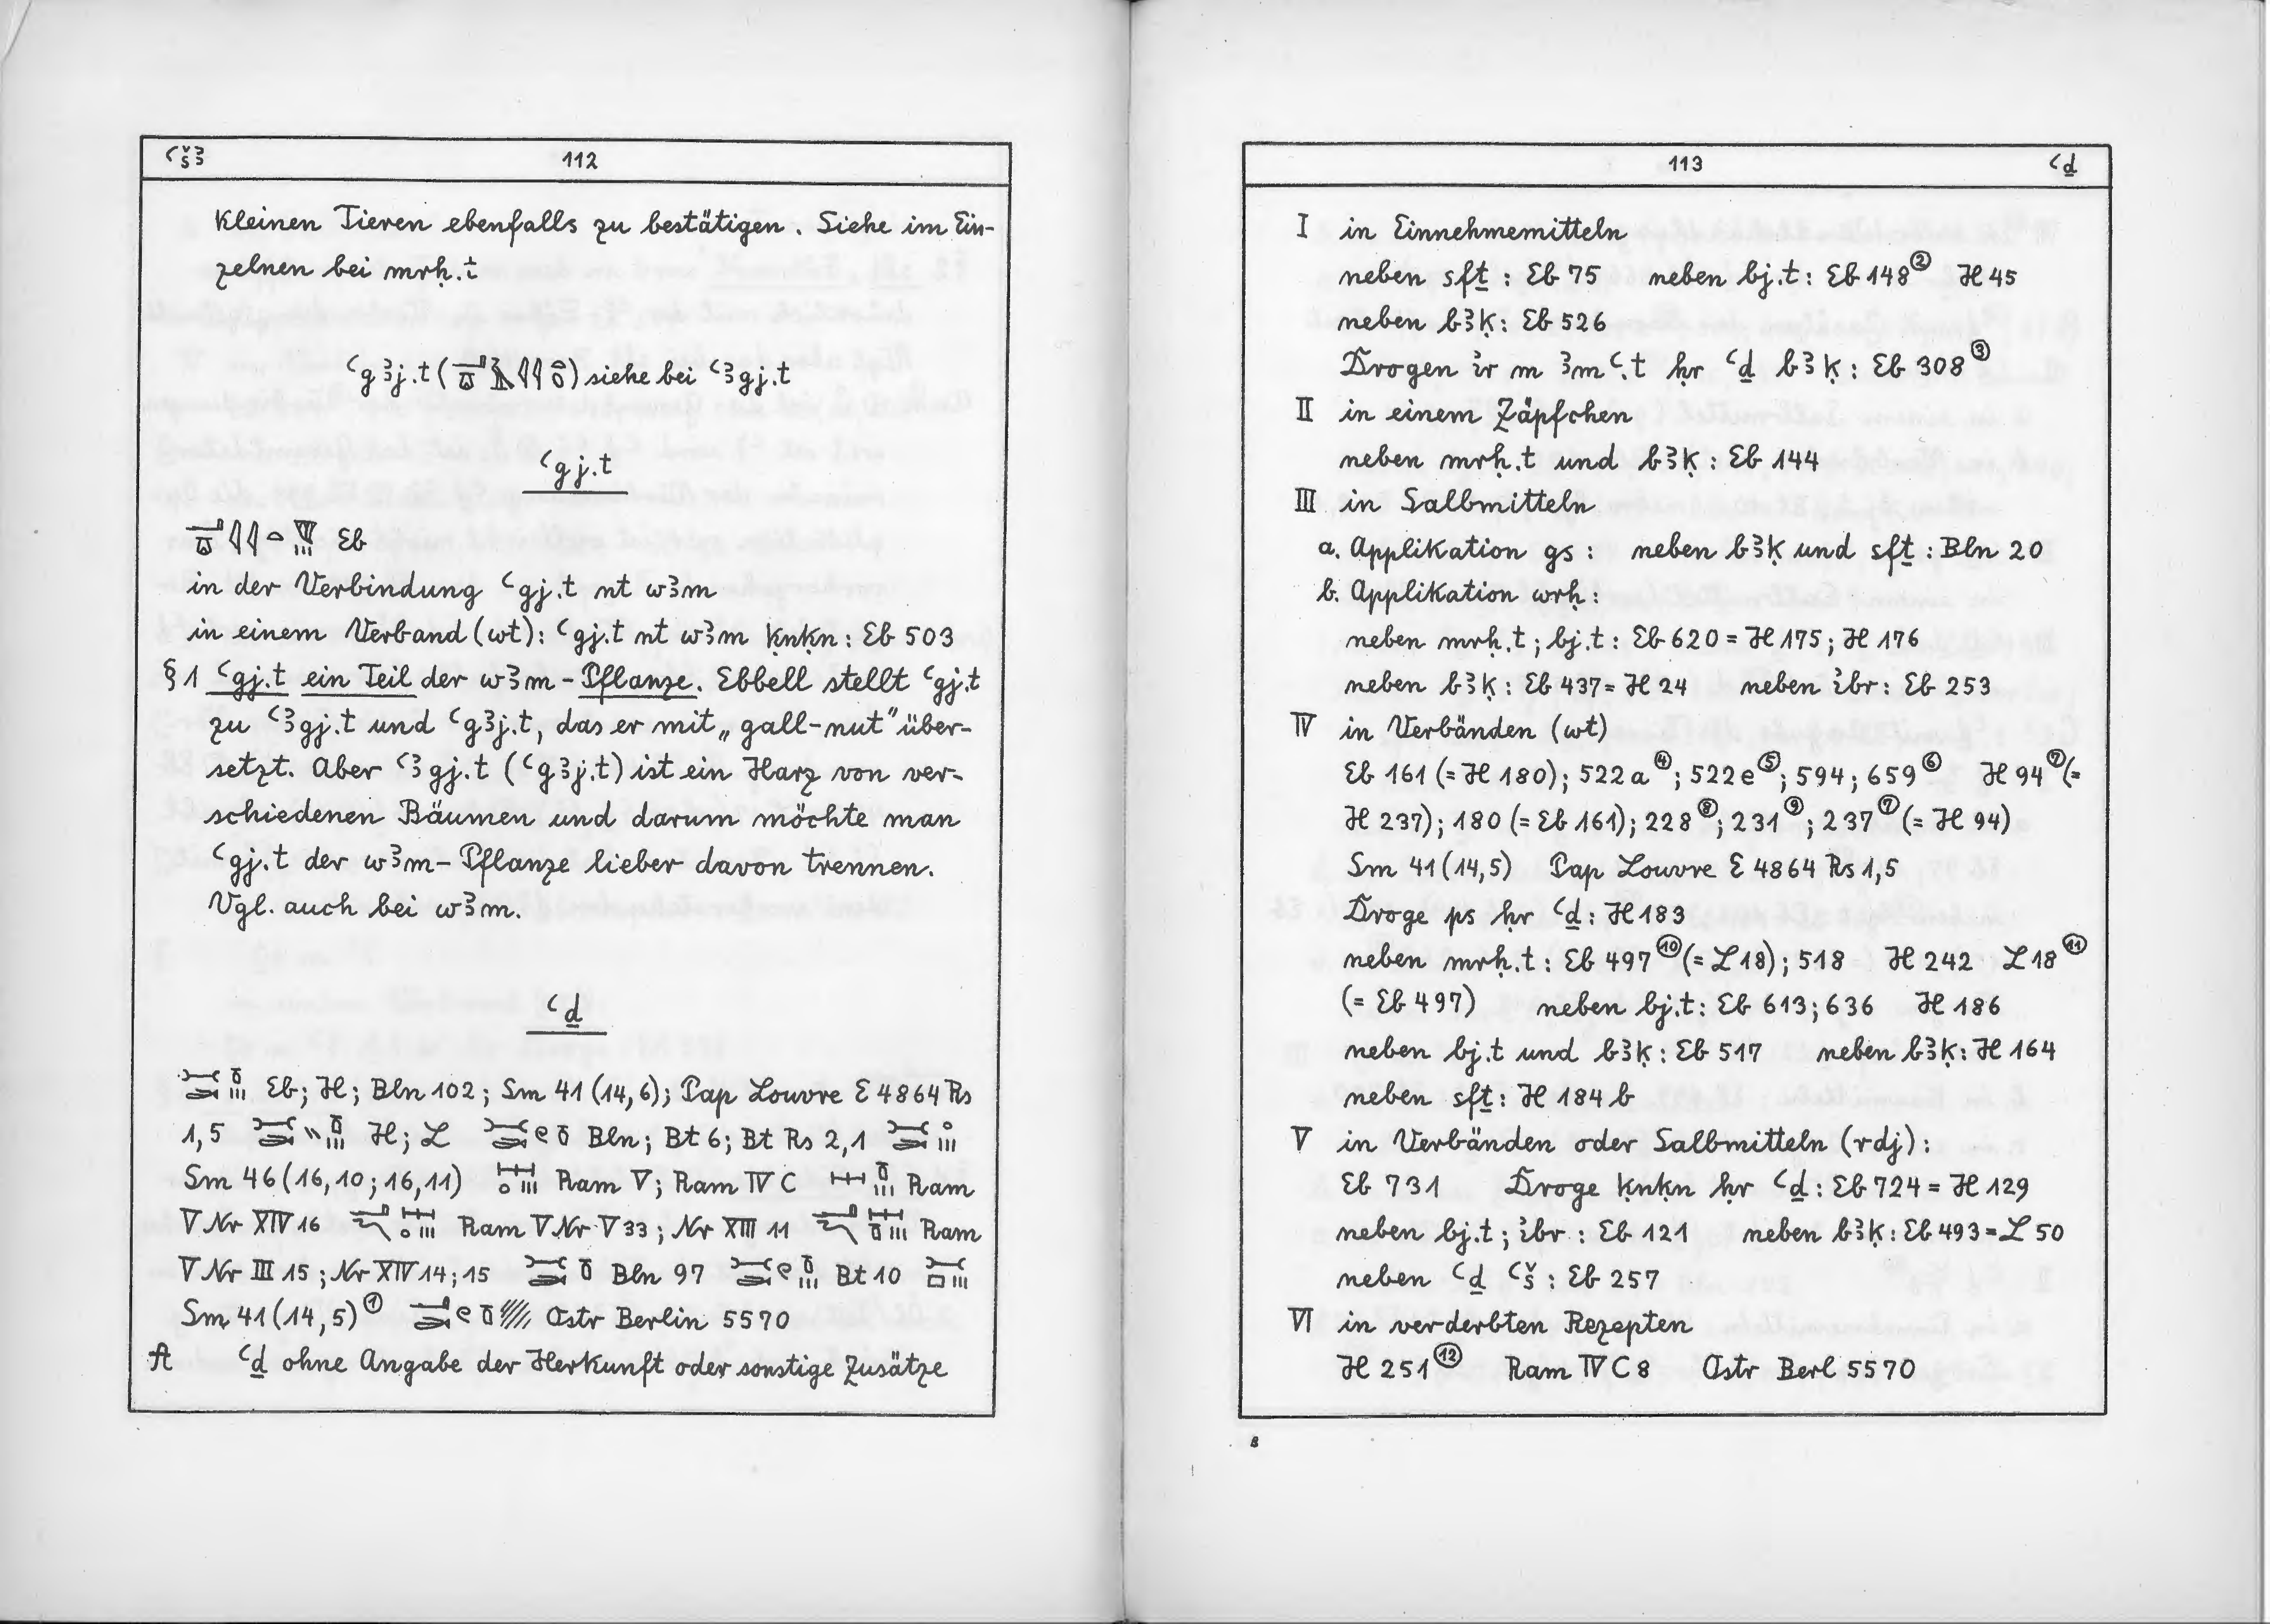 ꜥšꜣ 112
kleinen Tieren ebenfalls zu bestätigen. Siehe im Ein-
zelnen bei mrḥ.t
ꜥgꜣj.t ( ) siehe bei ꜥꜣgj.t
ꜥgj.t
Eb
in der Verbindung ꜥgj.t nt wꜣm
in einem Verband (wt): ꜥgj.t nt wꜣm ḳnḳn: Eb 503
§1 ꜥgj.t ein Teil der wꜣm-Pflanze. Ebbell stellt ꜥgj.t
zu ꜥꜣgj.t und ꜥgꜣj.t, das er mit „gall-nut" über-
setzt. Aber ꜥꜣgj.t (ꜥgꜣj.t) ist ein Harz von ver-
schiedenen Bäumen und darum möchte man
ꜥgj.t der wꜣm-Pflanze lieber davon trennen.
Vgl. auch bei wꜣm.
ꜥḏ
Eb; H; Bln 102; Sm 41 (14,6); Pap Louvre E 4864 Rs
1,5 H; L Bln; Bt 6; Bt Rs 2,1
Sm 46 (16,10; 16,11) Ram V; Ram IV C Ram
V Nr XIV 16 Ram V Nr V 33; Nr XIII 11 Ram
V Nr III 15; Nr XIV 14; 15 Bln 97 Bt 10
Sm 41 (14,5)① Ostr Berlin 5570
A ꜥḏ ohne Angabe der Herkunft oder sonstige Zusätze
113 ꜥḏ
I in Einnehmemitteln
neben sfṯ: Eb 75 neben bj.t: Eb 148② H 45
neben bꜣḳ: Eb 526
Drogen ꞽr m ꜣmꜥ.t ḥr ꜥḏ bꜣḳ: Eb 308③
II in einem Zäpfchen
neben mrḥ.t und bꜣḳ: Eb 144
III in Salbmitteln
a. Applikation gs: neben bꜣḳ und sfṯ: Bln 20
b. Applikation wrḥ:
neben mrḥ.t; bj.t: Eb 620 = H 175; H 176
neben bꜣḳ: Eb 437 = H 24 neben ꞽbr: Eb 253
IV in Verbänden (wt)
Eb 161 (= H 180); 522a④; 522e⑤; 594; 659⑥ H 94⑦ (=
H 237); 180 (= Eb 161); 228⑧; 231⑨; 237⑦ (= H 94)
Sm 41 (14,5) Pap Louvre E 4864 Rs 1,5
Droge ps ḥr ꜥḏ: H 183
neben mrḥ.t: Eb 497⑩ (= L 18); 518 H 242 L 18⑪
(= Eb 497) neben bj.t: Eb 613; 636 H 186
neben bj.t und bꜣḳ: Eb 517 neben bꜣḳ: H 164
neben sfṯ: H 184b
V in Verbänden oder Salbmitteln (rdj):
Eb 731 Droge ḳnḳn ḥr ꜥḏ: Eb 724 = H 129
neben bj.t; ꞽbr: Eb 121 neben bꜣḳ: Eb 493 = L 50
neben ꜥḏ ꜥš: Eb 257
VI in verderbten Rezepten
H 251⑫ Ram IV C 8 Ostr Berl 5570
8